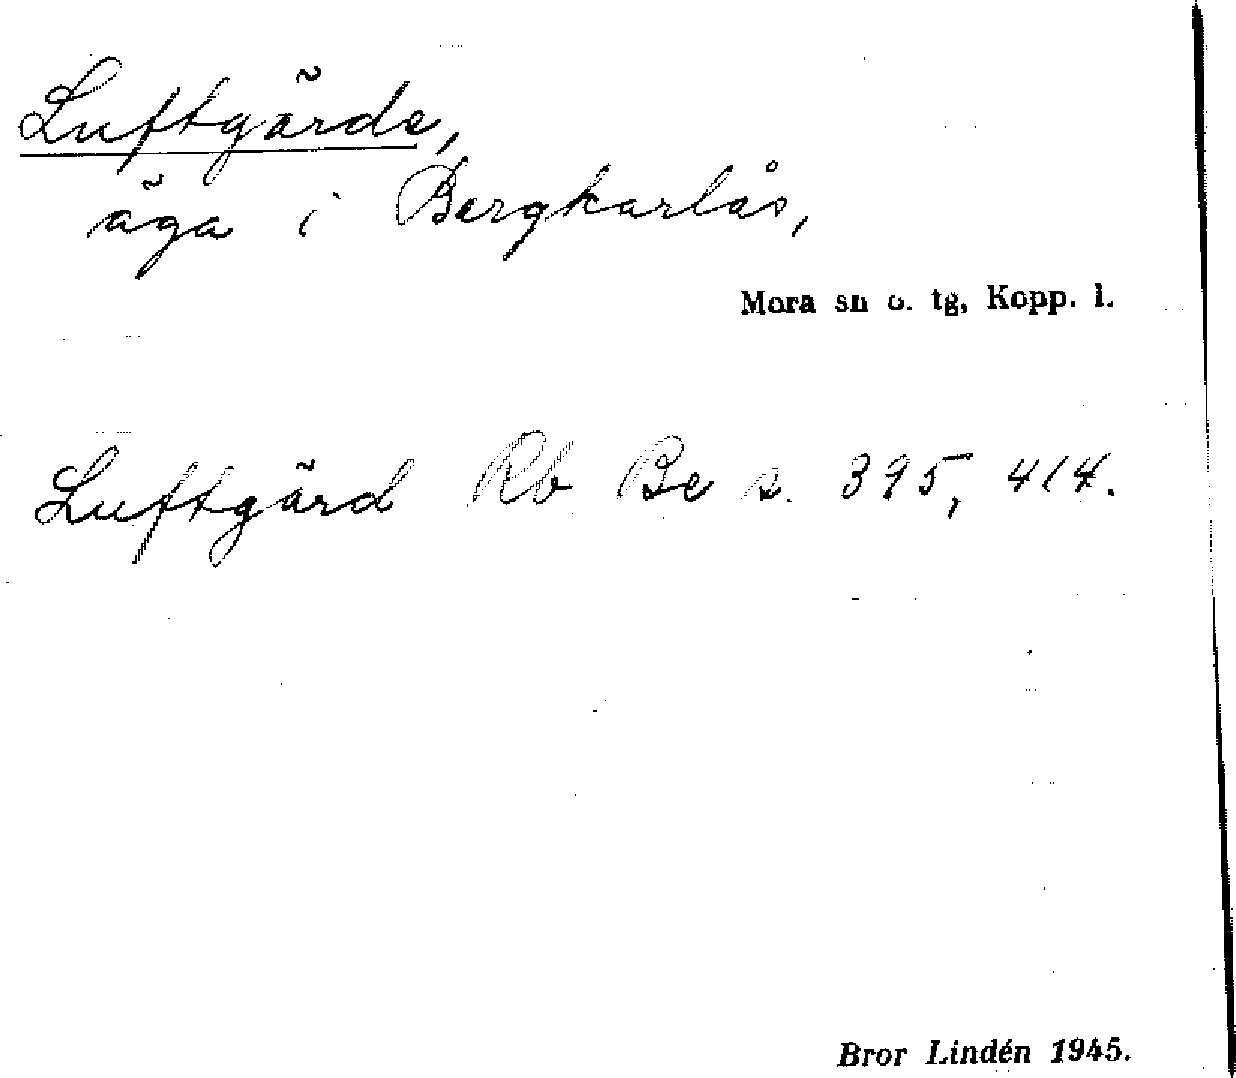 Luftgärde,
äga i Bergkarlås,
Mora sn o. tg, Kopp. l.
Luftgärd Rb Be s. 395, 414.
Bror Lindén 1945.